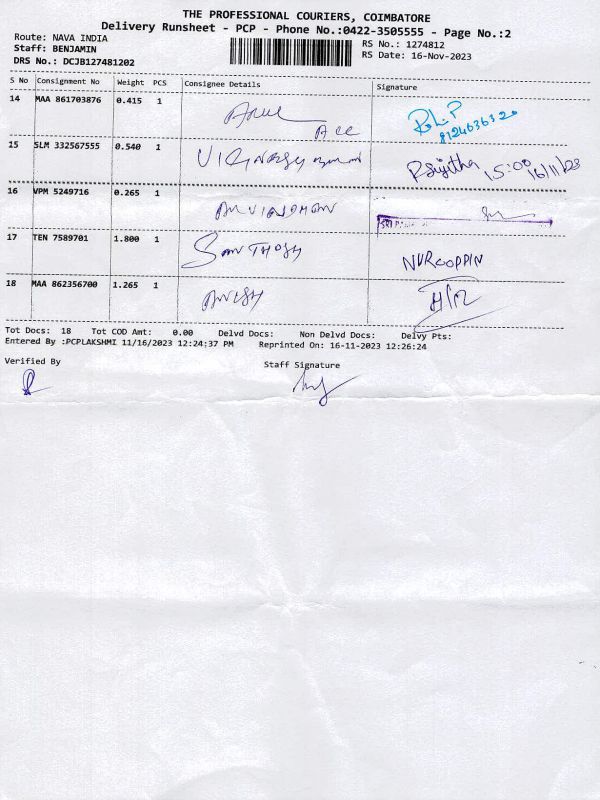 THE PROFESSIONAL COURIERS, COIMBATORE
Delivery Runsheet - PCP - Phone No.:0422-3505555 - Page No.:2
Route: NAVA INDIA
Staff: BENJAMIN
DRS No.: DCJB127481202
RS No.: 1274812
RS Date: 16-Nov-2023
S No Consignment No Weight PCS Consignee Details Signature
14 MAA 861703876 0.415 1
8124636320
15 SLM 332567555 0.540 1
15:00 16/11/23
16 VPM 5249716 0.265 1
17 TEN 7589701 1.800 1 SANTHOSH
18 MAA 862356700 1.265 1
Tot Docs: 18 Tot COD Amt: 0.00 Delvd Docs: Non Delvd Docs: Delvy Pts:
Entered By :PCPLAKSHMI 11/16/2023 12:24:37 PM Reprinted On: 16-11-2023 12:26:24
Verified By
Staff Signature